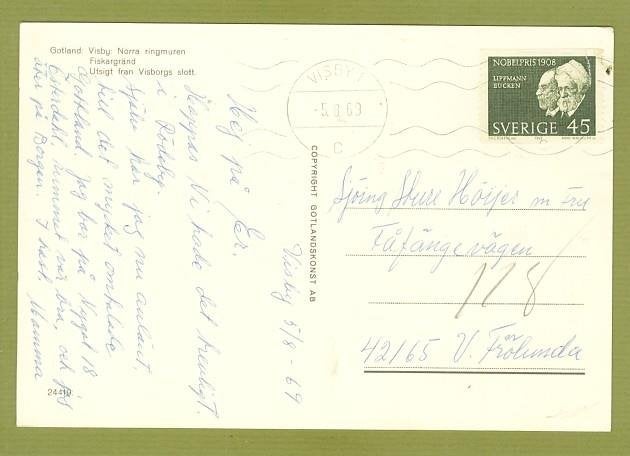 Gotland: Visby: Norra ringmuren
Fiskargränd
Utsigt från Visborgs slott.
VISBY 1
-5.8.69
C
NOBELPRIS 1908
LIPPMANN
EUCKEN
SVERIGE 45
Visby 5/8-69
Hej på Er.
Hoppas Ni hade det trevligt
i Rödeby.
Själv har jag nu anlänt
till det mycket omtalade
Gottland. Jag bor på Nygat 18
hemmet var bra, och
äter på Borgen. Mamma
COPYRIGHT GOTLANDSKONST AB
Sjöing Sture Höijer m fru
Fåfängevägen
118
42165 V. Frölunda
24410